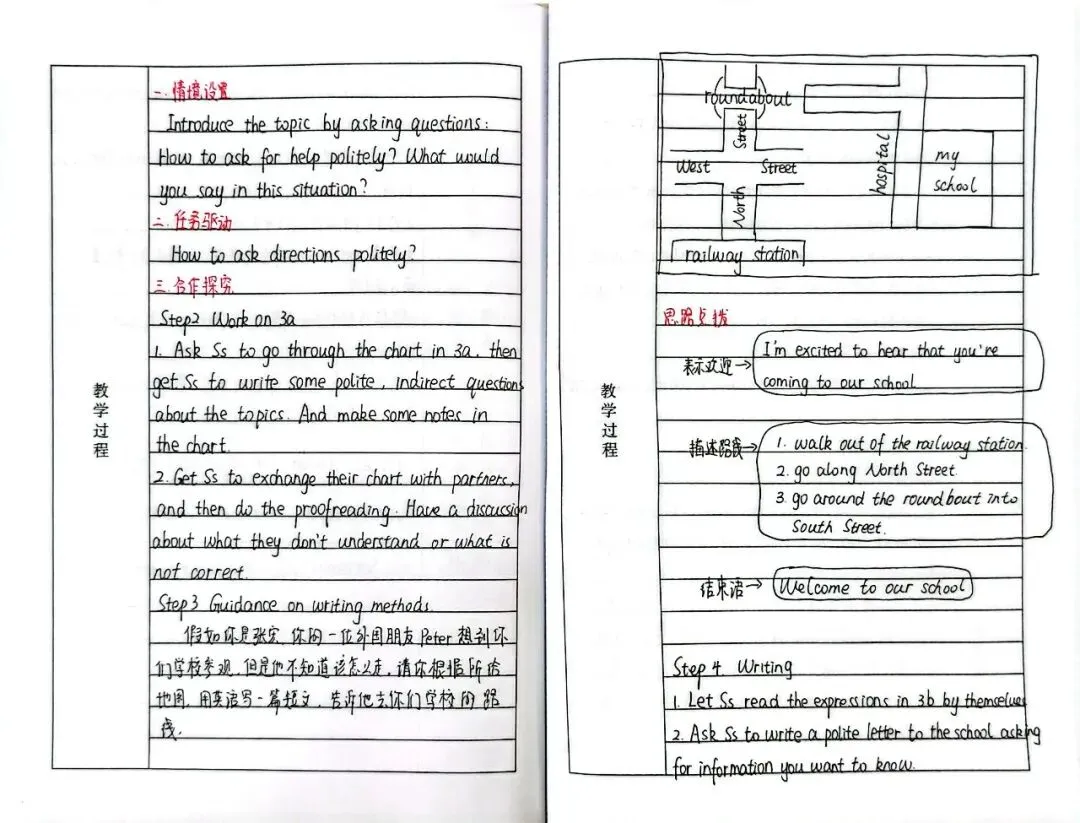 教学过程
一.情境设置
Introduce the topic by asking questions:
How to ask for help politely? What would
you say in this situation?
二.任务驱动
How to ask directions politely?
三.合作探究
Step2 Work on 3a
1. Ask Ss to go through the chart in 3a, then
get Ss to write some polite, indirect questions
about the topics. And make some notes in
the chart.
2. Get Ss to exchange their chart with partners,
and then do the proofreading. Have a discussion
about what they don't understand or what is
not correct.
Step3 Guidance on writing methods.
假如你是张宏,你的一位外国朋友Peter想到你
们学校参观,但是他不知道该怎么走,请你根据所给
地图,用英语写一篇短文,告诉他去你们学校的路
线.
教学过程
roundabout
Street
West Street
North
hospital
my
school
railway station
思路点拨
表示欢迎→ I'm excited to hear that you're
coming to our school
描述路线→ 1. walk out of the railway station.
2. go along North Street.
3. go around the roundbout into
South Street.
结束语→ Welcome to our school
Step 4. Writing
1. Let Ss read the expressions in 3b by themselves
2. Ask Ss to write a polite letter to the school asking
for information you want to know.